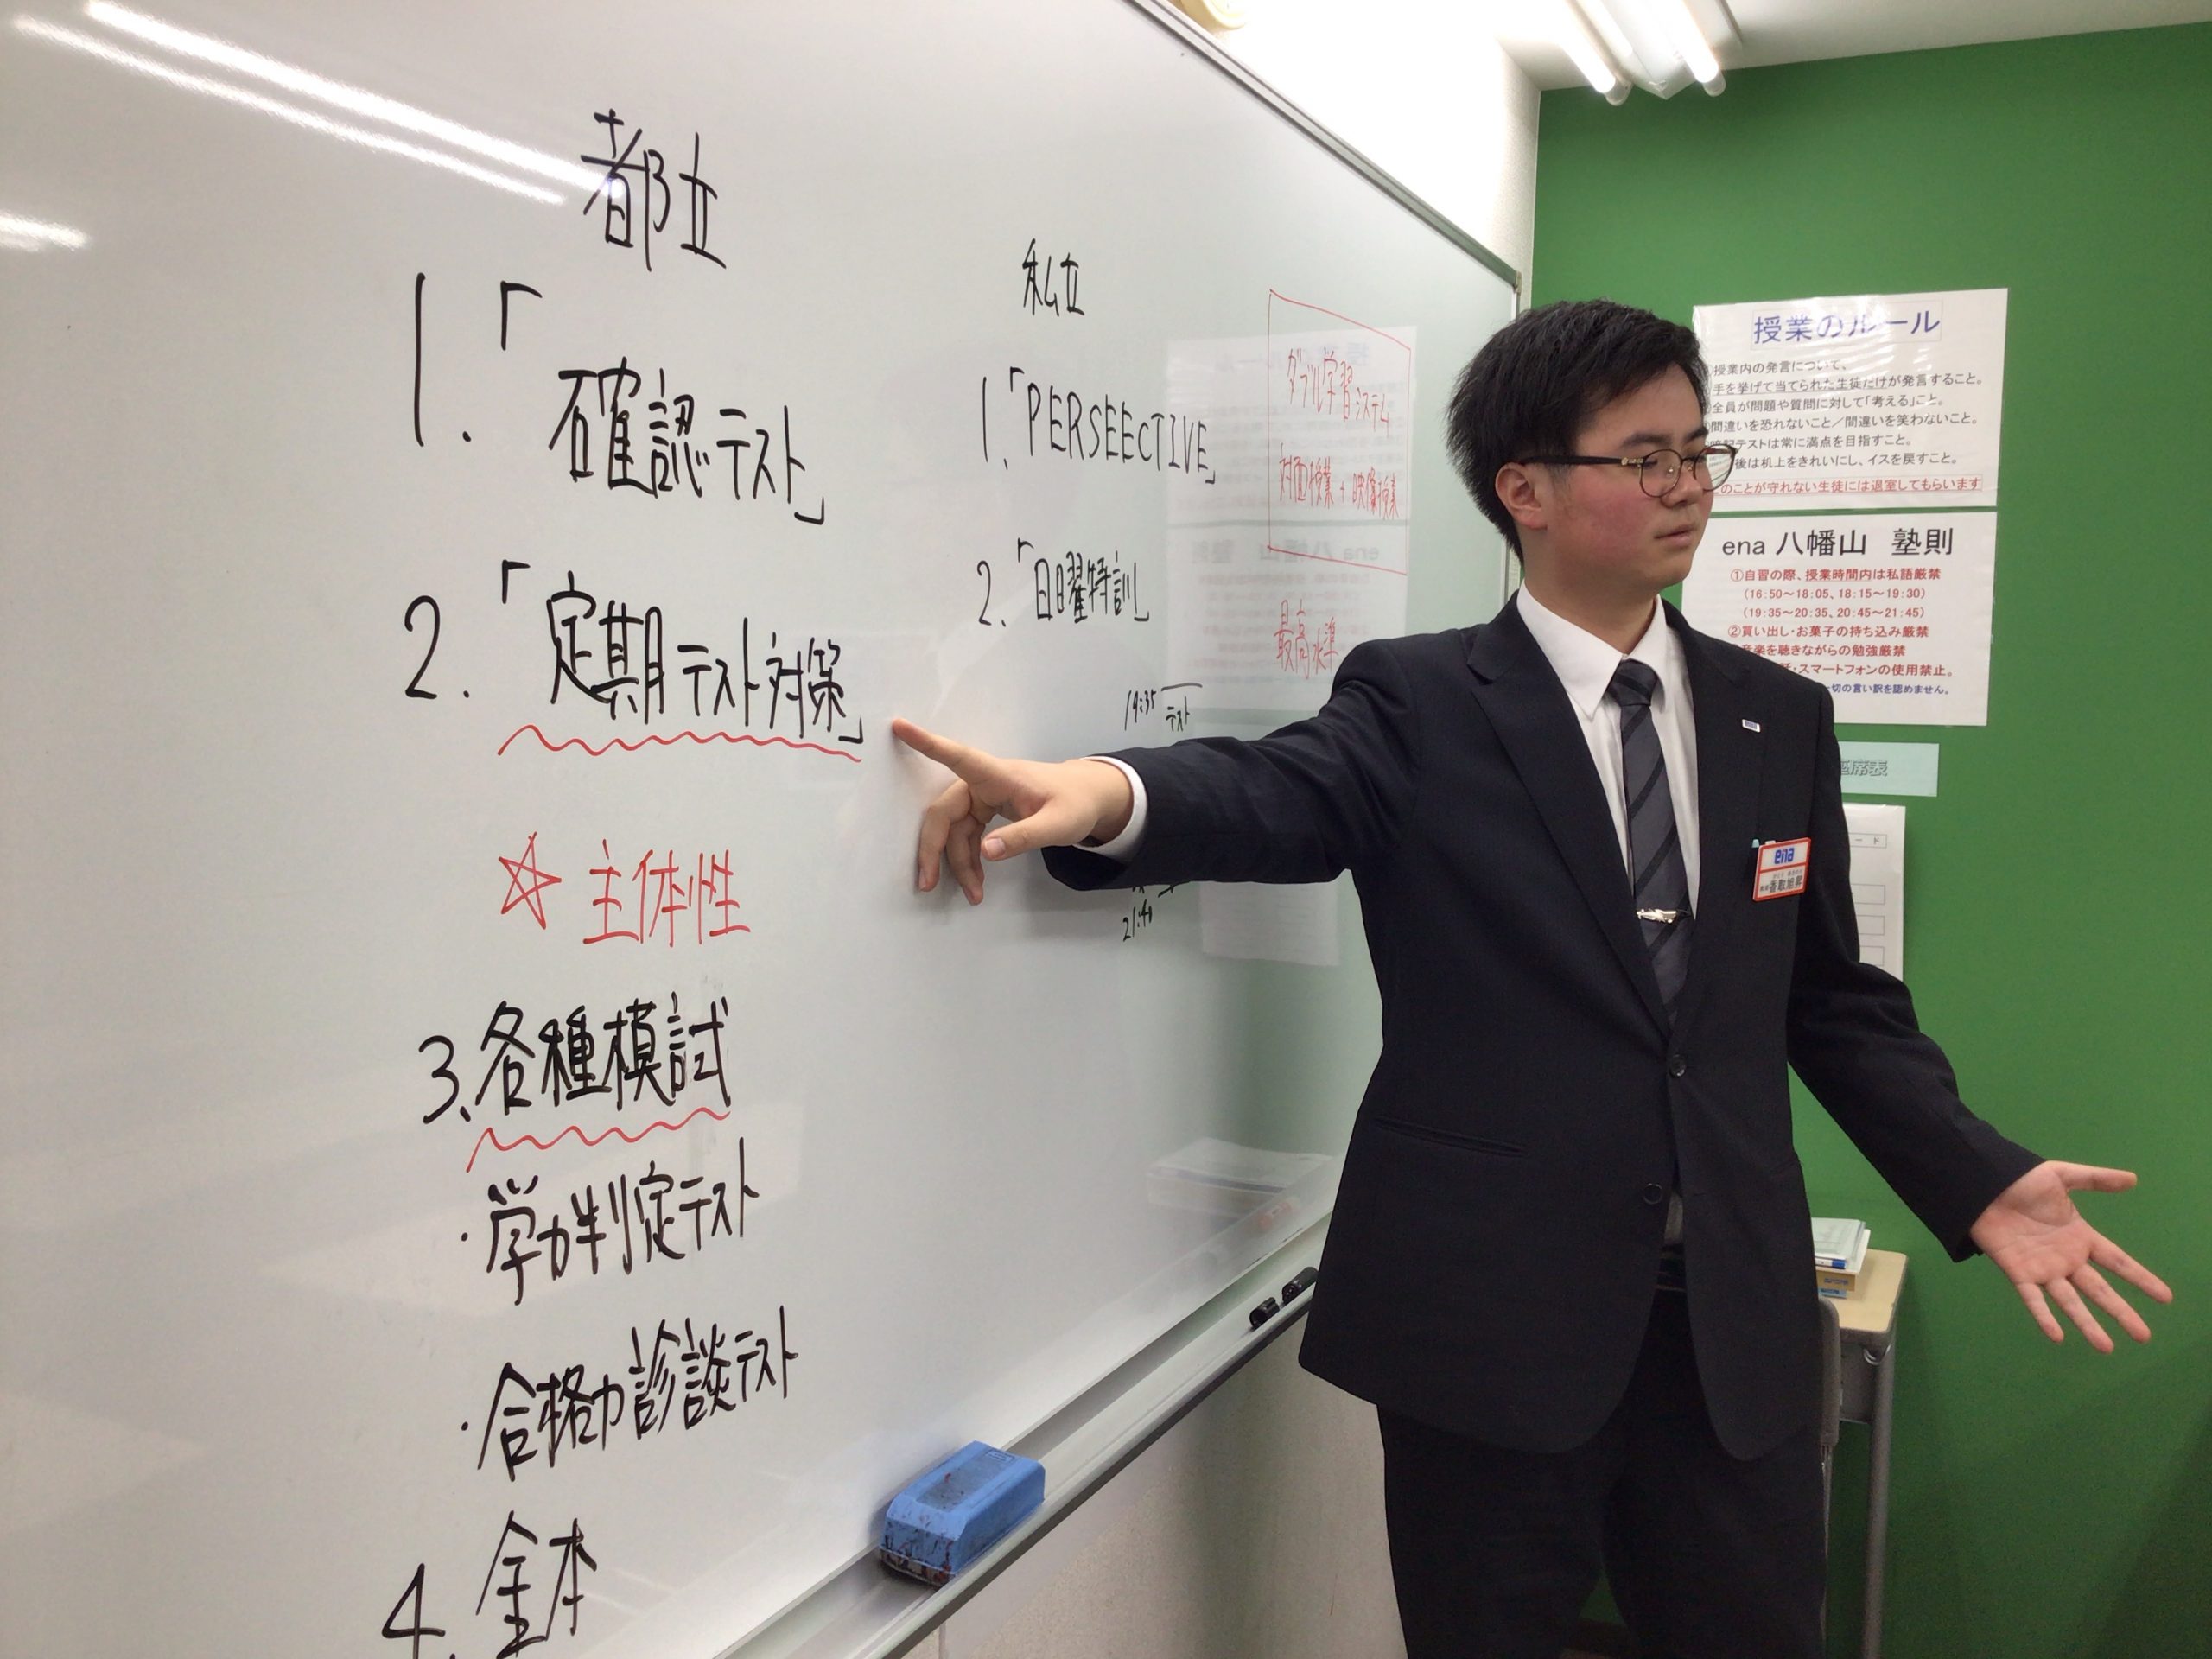 都立
1.「
確認テスト」
2.「定期テスト対策」
☆ 主体性
3、各種模試
・学力判定テスト
・合格力診談テスト
4. 金本
私立
1、「PERSEECTIVE」
2.「日曜特訓」
ダブル学習システム
対面授業+映像授業
最高水準
19:35 テスト
21:40
授業のルール
授業内の発言について、
手を挙げて当てられた生徒だけが発言すること。
全員が問題や質問に対して「考える」こと。
間違いを恐れないこと/間違いを笑わないこと。
テストは常に満点を目指すこと。
後は机上をきれいにし、イスを戻すこと。
のことが守れない生徒には退室してもらいます
ena 八幡山 塾則
①自習の際、授業時間内は私語厳禁
(16:50～18:05、18:15～19:30)
(19:35～20:35、20:45～21:45)
②買い出し・お菓子の持ち込み厳禁
音楽を聴きながらの勉強厳禁
・スマートフォンの使用禁止。
切の言い訳を認めません。
座席表
ena
香取旭昇